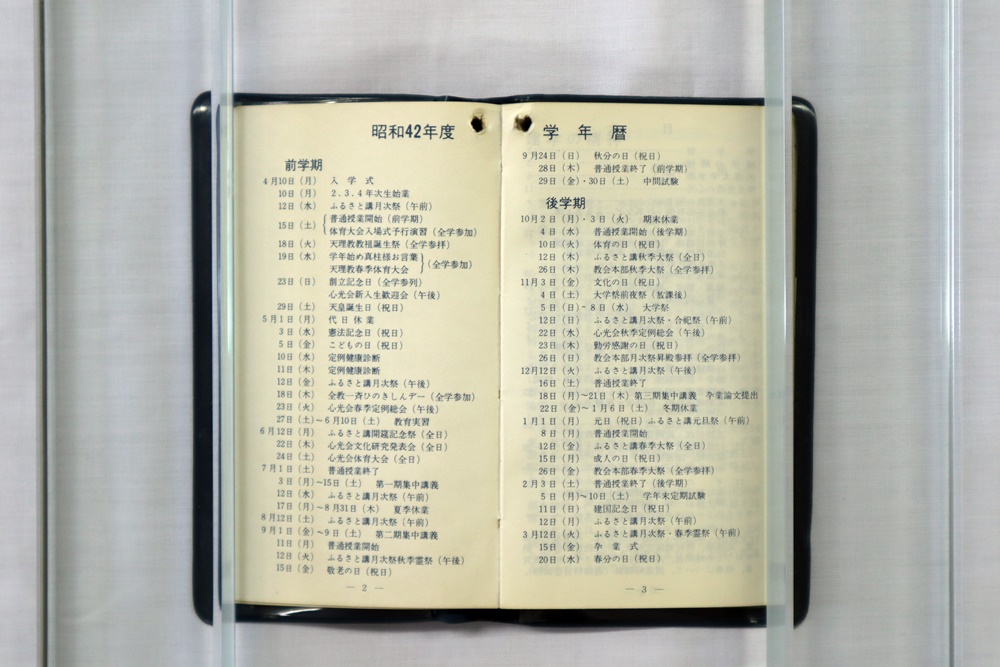 昭和42年度
前学期
4月10日(月) 入学式
10日(月) 2.3.4年次生始業
12日(水) ふるさと講月次祭(午前)
15日(土) 普通授業開始(前学期)
体育大会入場式予行演習(全学参加)
18日(火) 天理教教祖誕生祭(全学参拝)
19日(水) 学年始め真柱様お言葉
天理教春季体育大会 (全学参加)
23日(日) 創立記念日(全学参列)
心光会新入生歓迎会(午後)
29日(土) 天皇誕生日(祝日)
5月1日(月) 代日休業
3日(水) 憲法記念日(祝日)
5日(金) こどもの日(祝日)
10日(水) 定例健康診断
11日(木) 定例健康診断
12日(金) ふるさと講月次祭(午後)
18日(木) 全教一斉ひのきしんデー(全学参加)
23日(火) 心光会春季定例総会(午後)
27日(土)~6月10日(土) 教育実習
6月12日(月) ふるさと講開筵記念祭(全日)
22日(木) 心光会文化研究発表会(全日)
24日(土) 心光会体育大会(全日)
7月1日(土) 普通授業終了
3日(月)~15日(土) 第一期集中講義
12日(水) ふるさと講月次祭(午前)
17日(月)~8月31日(木) 夏季休業
8月12日(土) ふるさと講月次祭(午前)
9月1日(金)~9日(土) 第二期集中講義
11日(月) 普通授業開始
12日(火) ふるさと講月次祭秋季霊祭(午後)
15日(金) 敬老の日(祝日)
— 2 —
学年暦
9月24日(日) 秋分の日(祝日)
28日(木) 普通授業終了(前学期)
29日(金)・30日(土) 中間試験
後学期
10月2日(月)・3日(火) 期末休業
4日(水) 普通授業開始(後学期)
10日(火) 体育の日(祝日)
12日(木) ふるさと講秋季大祭(全日)
26日(木) 教会本部秋季大祭(全学参拝)
11月3日(金) 文化の日(祝日)
4日(土) 大学祭前夜祭(放課後)
5日(日)~8日(水) 大学祭
12日(日) ふるさと講月次祭・合祀祭(午前)
22日(水) 心光会秋季定例総会(午後)
23日(木) 勤労感謝の日(祝日)
26日(日) 教会本部月次祭昇殿参拝(全学参拝)
12月12日(火) ふるさと講月次祭(午後)
16日(土) 普通授業終了
18日(月)~21日(木) 第三期集中講義 卒業論文提出
22日(金)~1月6日(土) 冬期休業
1月1日(月) 元日(祝日)ふるさと講元旦祭(午前)
8日(月) 普通授業開始
12日(金) ふるさと講春季大祭(全日)
15日(月) 成人の日(祝日)
26日(金) 教会本部春季大祭(全学参拝)
2月3日(土) 普通授業終了(後学期)
5日(月)~10日(土) 学年末定期試験
11日(日) 建国記念日(祝日)
12日(月) ふるさと講月次祭(午前)
3月12日(火) ふるさと講月次祭・春季霊祭(午前)
15日(金) 卒業式
20日(水) 春分の日(祝日)
— 3 —